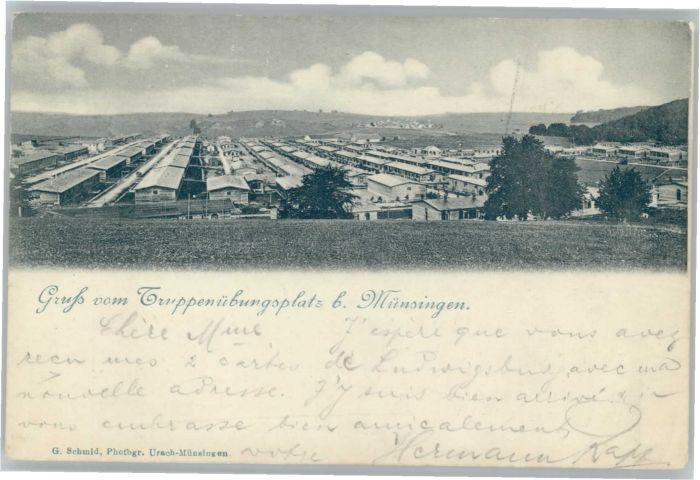 Gruß vom Truppenübungsplatz b. Münsingen.
Chère Mme J'espère que vous avez
recu mes 2 cartes de Ludwigsburg avec ma
nouvelle adresse. J'y suis bien arrivé.
vous embrasse bien amicalement
votre Hermann Rapp
G. Schmid, Photbgr. Urach-Münsingen